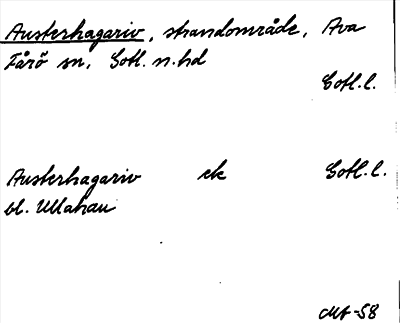 Austerhagariv, strandområde, Ava
Fårö sn, Gotl. n. hd
Gotl. l.
Austerhagariv ek Gotl. l.
bl. Ullahau
-58